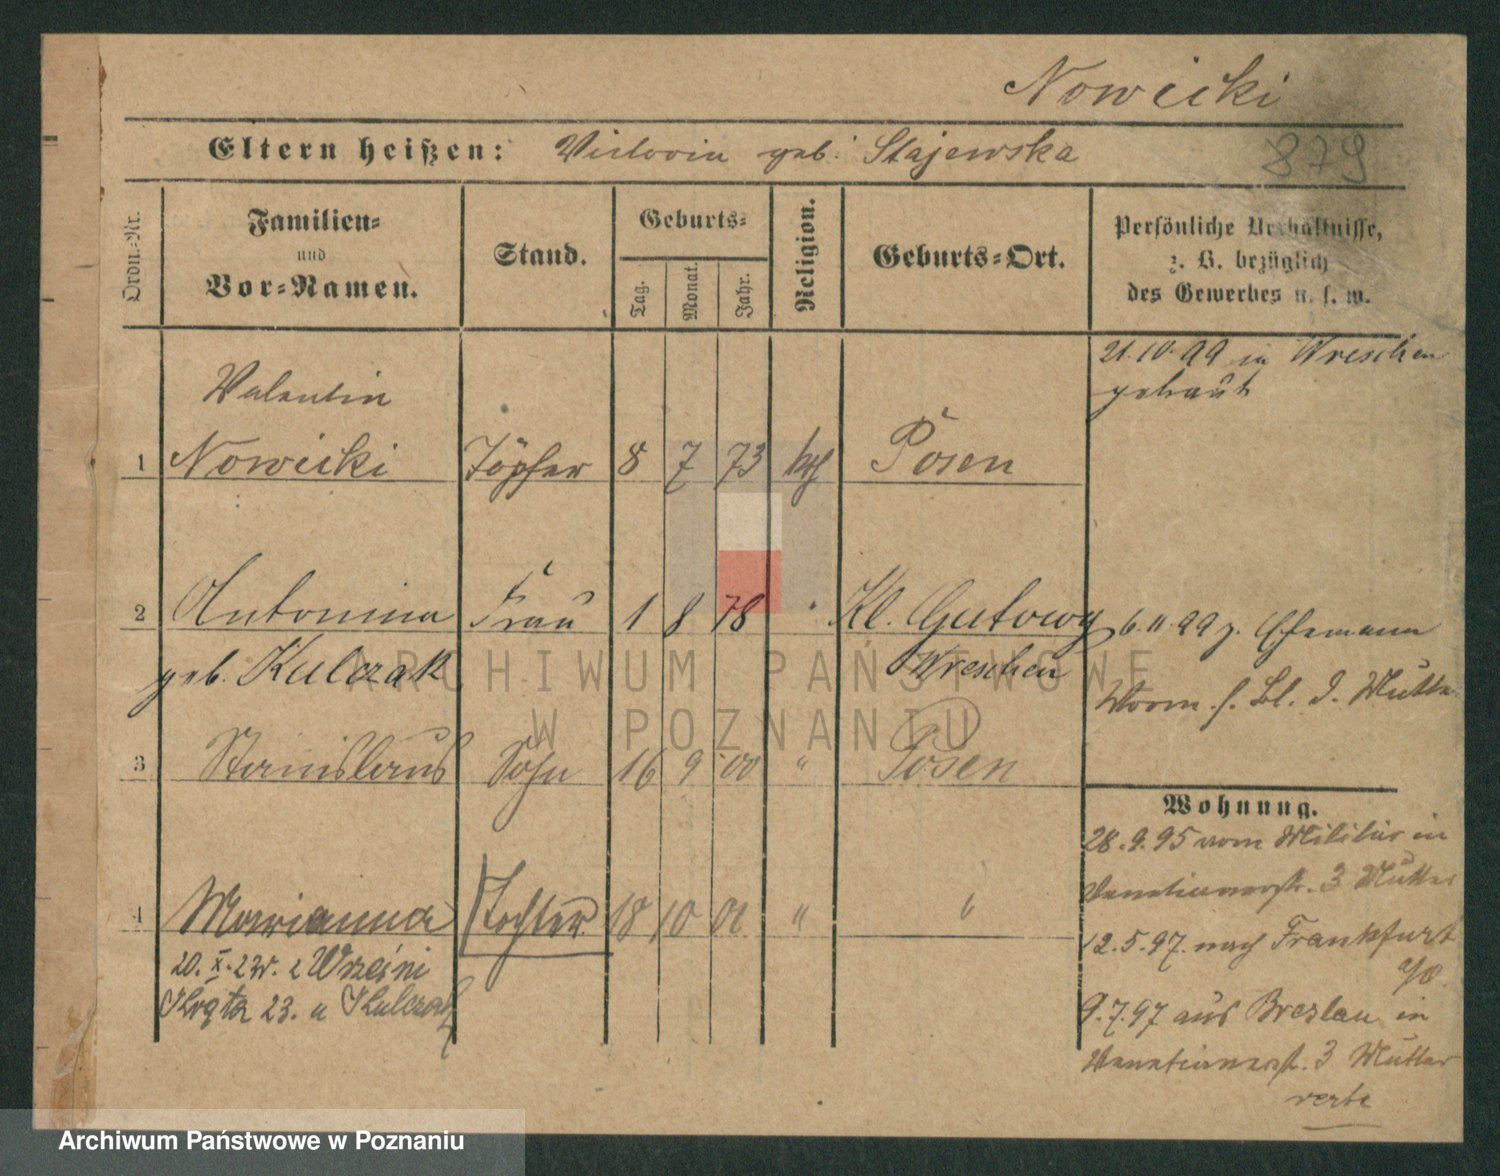 Nowicki
Eltern heißen: Victoria geb. Stajewska
879
Ordn.-Nr.
Familien-
und
Vor-Namen.
Stand.
Geburts-
Tag. Monat. Jahr.
Religion.
Geburts-Ort.
Persönliche Verhältnisse,
z. B. bezüglich
des Gewerbes u. s. w.
21.10.99 in Wreschen
getraut
Valentin
1 Nowicki Töpfer 8 7 73 kth Posen
2 Antonina Frau 1 8 78 " Kl. Gutowy
geb. Kulczak Wreschen
6.11.99 z. Ehemann
Worm. s. Bl. d. Mutter
3 Stanislaus Sohn 16 9 00 " Posen
Wohnung.
28.9.95 vom Militär in
Venetianerstr. 3 Mutter
4 Marianna Tochter 18 10 01 " "
20. X. 23r. z Wrześni
12.5.97. nach Frankfurt
a/O.
23. u Kulczak
9.7.97 aus Breslau in
Venetianerstr. 3 Mutter
verte
ARCHIWUM PAŃSTWOWE
W POZNANIU
Archiwum Państwowe w Poznaniu